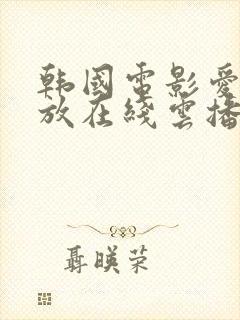 韩國電影愛
放在綫雲播
聶暎荣